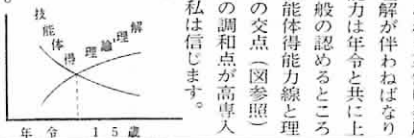 解が伴わねばなり
力は年令と共に上
般の認めるところ
能体得能力線と理
の交点（図参照）
の調和点が高専入
私は信じます。
技能体得
理論理解
年令 15歳